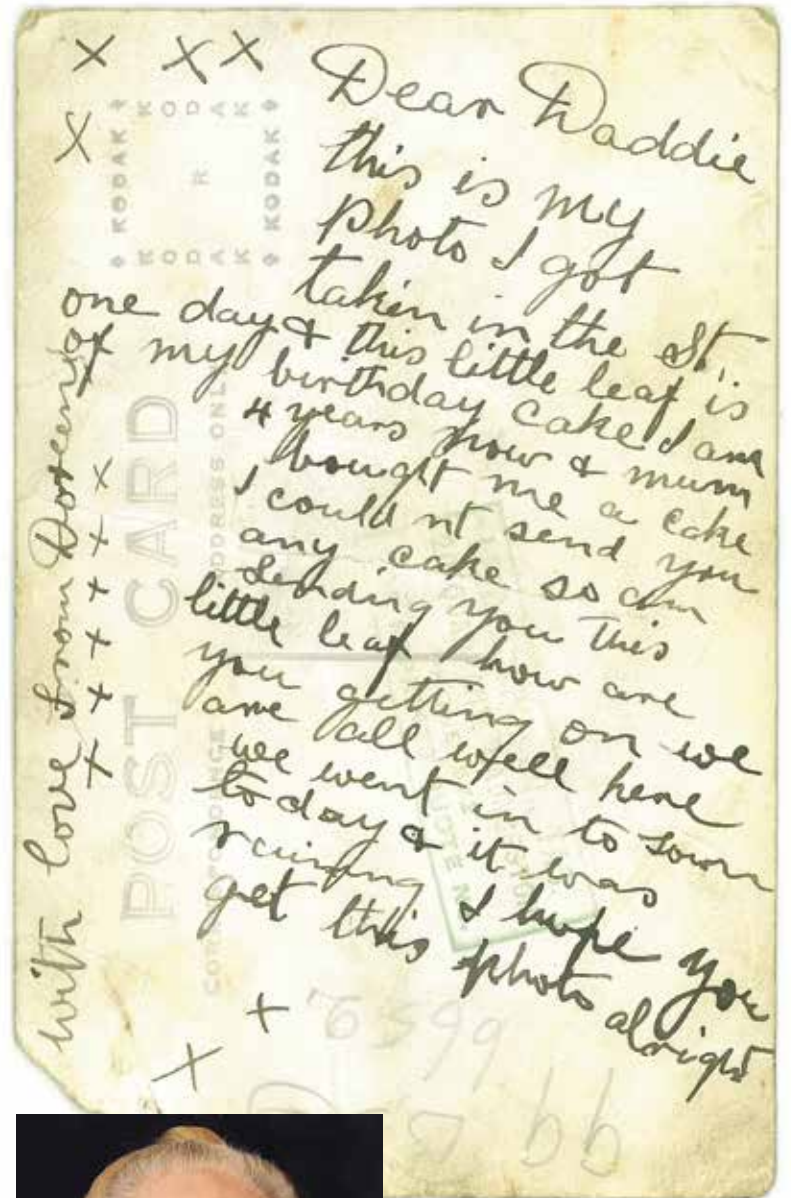 Dear Daddie
this is my
photo I got
taken in the St.
one day & this little leaf is
of my birthday cake I am
4 years now & mum
bought me a cake
I could nt send you
any cake so am
sending you this
little leaf how are
you getting on we
are all well here
we went in to town
today & it was
raining I hope you
get this photo alright
with love from Doreen
x x x
x
x
x
x
x
x
x
x
x
KODAK
KODAK
POST CARD
CORRESPONDENCE
ADDRESS ONLY